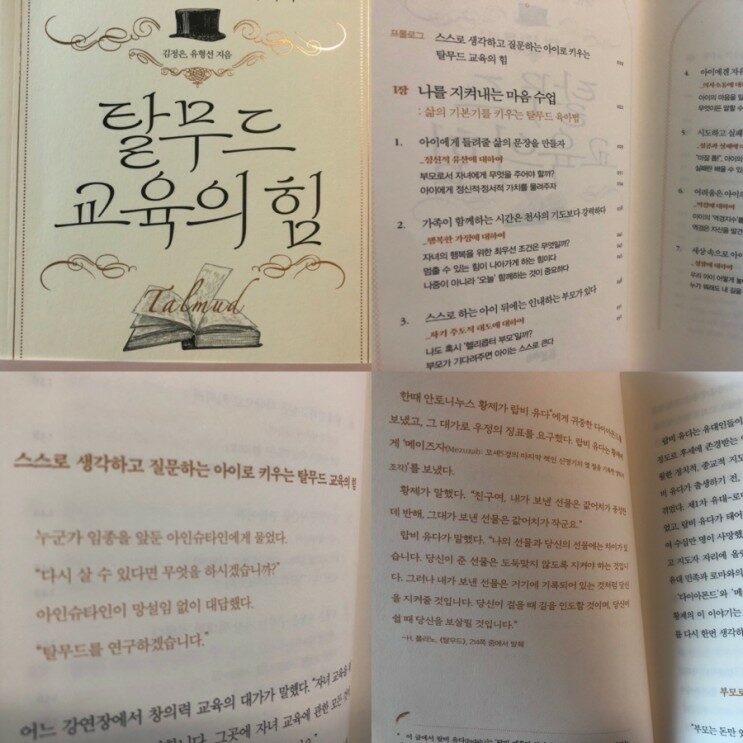 김정은, 유형선 지음
탈무드
교육의 힘
Talmud
프롤로그 스스로 생각하고 질문하는 아이로 키우는
탈무드 교육의 힘
1장 나를 지켜내는 마음 수업
: 삶의 기본기를 키우는 탈무드 육아법
1. 아이에게 들려줄 삶의 문장을 만들자
_정신적 유산에 대하여
부모로서 자녀에게 무엇을 주어야 할까?
아이에게 정신적·정서적 가치를 물려주자
2. 가족이 함께하는 시간은 천사의 기도보다 강력하다
_행복한 가정에 대하여
자녀의 행복을 위한 최우선 조건은 무엇일까?
멈출 수 있는 힘이 나아가게 하는 힘이다
나중이 아니라 '오늘' 함께하는 것이 중요하다
3. 스스로 하는 아이 뒤에는 인내하는 부모가 있다
_자기 주도적 태도에 대하여
나도 혹시 '헬리콥터 부모'일까?
부모가 기다려주면 아이는 스스로 큰다
4. 아이에겐
아이의 마음을
무엇이든 말할 수
5. 시도하고 실패
6. 어려움은 아이의
_역경에 대하여
아이의 '역경지수'를
역경은 자산을
7. 세상 속으로 아이
우리 아이 어떻게
누가 뭐래도 내 길을
스스로 생각하고 질문하는 아이로 키우는 탈무드 교육의 힘
누군가 임종을 앞둔 아인슈타인에게 물었다.
"다시 살 수 있다면 무엇을 하시겠습니까?"
아인슈타인이 망설임 없이 대답했다.
"탈무드를 연구하겠습니다."
어느 강연장에서 창의력 교육의 대가가 말했다. "자녀 교육을
그곳에 자녀 교육에 관한 모든 것이
한때 안토니누스 황제가 랍비 유다*에게 귀중한 다이아몬드를
보냈고, 그 대가로 우정의 징표를 요구했다. 랍비 유다는 황제에
게 '메이즈자(Mezuzah): 모세5경의 마지막 책인 신명기의 몇 절을 기록한 양피지
조각)'를 보냈다.
황제가 말했다. "친구여, 내가 보낸 선물은 값어치가 굉장한
데 반해, 그대가 보낸 선물은 값어치가 작군요."
랍비 유다가 말했다. "나의 선물과 당신의 선물에는 차이가 있
습니다. 당신이 준 선물은 도둑맞지 않도록 지켜야 하는 것입니
다. 그러나 내가 보낸 선물은 거기에 기록되어 있는 것처럼 당신
을 지켜줄 것입니다. 당신이 걸을 때 길을 인도할 것이며, 당신이
쉴 때 당신을 보살필 것입니다."
-H. 폴라노, 《탈무드》, 214쪽 중에서 발췌
* 이 글에서 랍비 유다
랍비 유다는 유대인들이
정도로 후세에 존경받는
월한 정치적, 종교적 지도
비 유다가 출생하기 전,
겪었다. 제1차 유대-로마
었고, 랍비 유다가 태어
여 수십만 명이 사망했
고 지도자 자리에 올
유대 민족과 로마와의
'다이아몬드'와 '메
황제의 이 이야기는
를 다시 한번 생각하
부모로
"부모는 돈만 있